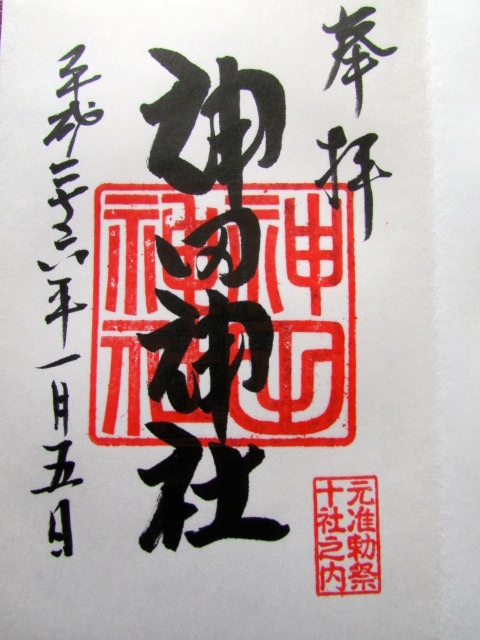 奉拝
神田神社
神田
神社
元准勅祭
十社之内
平成二十六年一月五日